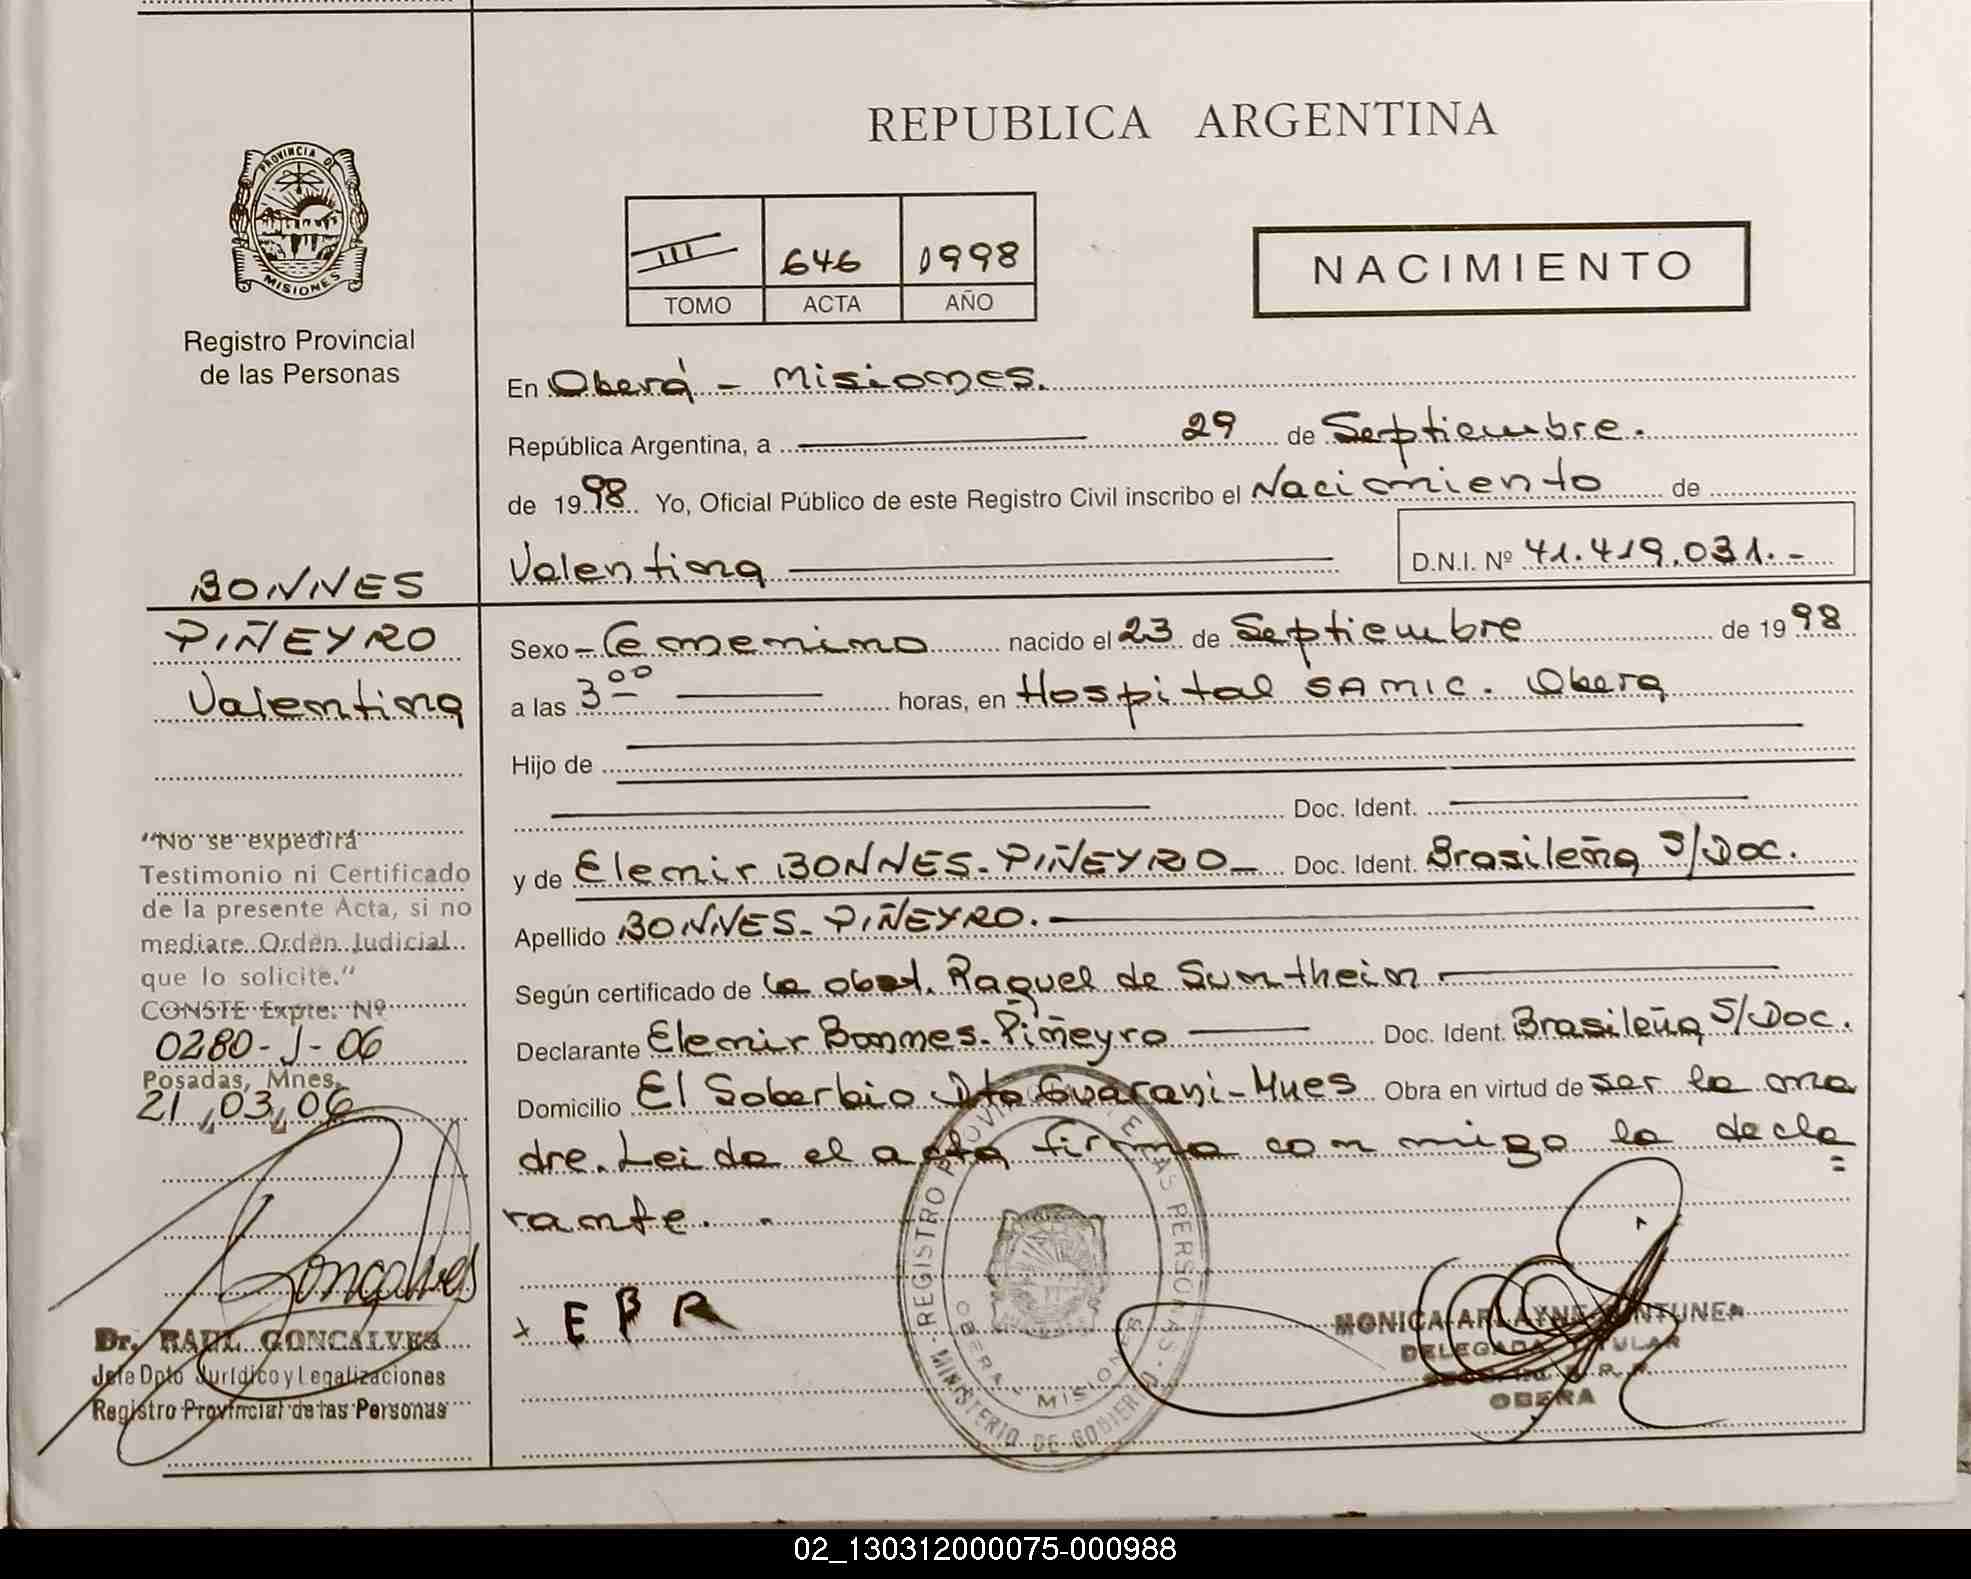 REPUBLICA ARGENTINA
PROVINCIA D
MISIONES
Registro Provincial
de las Personas
III 646 1998
TOMO ACTA AÑO
NACIMIENTO
En Oberá - Misiones.
República Argentina, a 29 de Septiembre.
de 1998 Yo, Oficial Público de este Registro Civil inscribo el Nacimiento de
Valentina D.N.I. Nº 41.419.031.-
BONNES
PIÑEYRO
Valentina
Sexo - Femenino nacido el 23 de Septiembre de 1998
a las 3 00 horas, en Hospital SAMIC. Obera
Hijo de
Doc. Ident.
y de Elemir BONNES-PIÑEYRO - Doc. Ident. Brasileña S/Doc.
Apellido BONNES-PIÑEYRO.
Según certificado de la obst. Raquel de Suntheim
Declarante Elemir Bonnes-Piñeyro Doc. Ident. Brasileña S/Doc.
Domicilio El Soberbio Dto Guarani-Mnes Obra en virtud de ser la ma
dre. Leida el acta firma conmigo la decla
rante.
"No se expedirá
Testimonio ni Certificado
de la presente Acta, si no
mediare Orden Judicial
que lo solicite."
CONSTE Expte. Nº
0280-J-06
Posadas, Mnes.
21, 03, 06
Goncalves
Dr. RAUL GONCALVES
Jefe Dpto Jurídico y Legalizaciones
Registro Provincial de las Personas
x E B R
REGISTRO PROVINCIAL DE LAS PERSONAS
MINISTERIO DE GOBIERNO
OBERA - MISIONES
MONICA ARLAYNE
DELEGADA TITULAR
OBERA
02_130312000075-000988